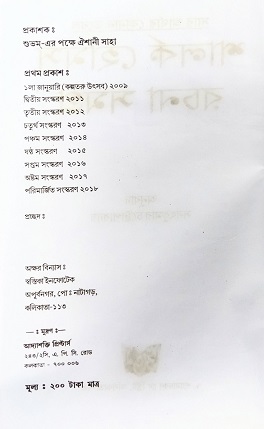 প্রকাশক ঃ
শুভম্-এর পক্ষে ঐশানী সাহা
প্রথম প্রকাশ ঃ
১লা জানুয়ারি (কল্পতরু উৎসব) ২০০৯
দ্বিতীয় সংস্করণ ২০১১
তৃতীয় সংস্করণ ২০১২
চতুর্থ সংস্করণ ২০১৩
পঞ্চম সংস্করণ ২০১৪
ষষ্ঠ সংস্করণ ২০১৫
সপ্তম সংস্করণ ২০১৬
অষ্টম সংস্করণ ২০১৭
পরিমার্জিত সংস্করণ ২০১৮
প্রচ্ছদ ঃ
অক্ষর বিন্যাস ঃ
স্বস্তিকা ইনফোটেক
অপূর্বনগর, পোঃ নাটাগড়,
কলিকাতা-১১৩
—ঃ মুদ্রণ ঃ—
আদ্যাশক্তি প্রিন্টার্স
২৪৩/২সি, এ. পি. সি. রোড
কলকাতা - ৭০০ ০০৬
মূল্য ঃ ২০০ টাকা মাত্র